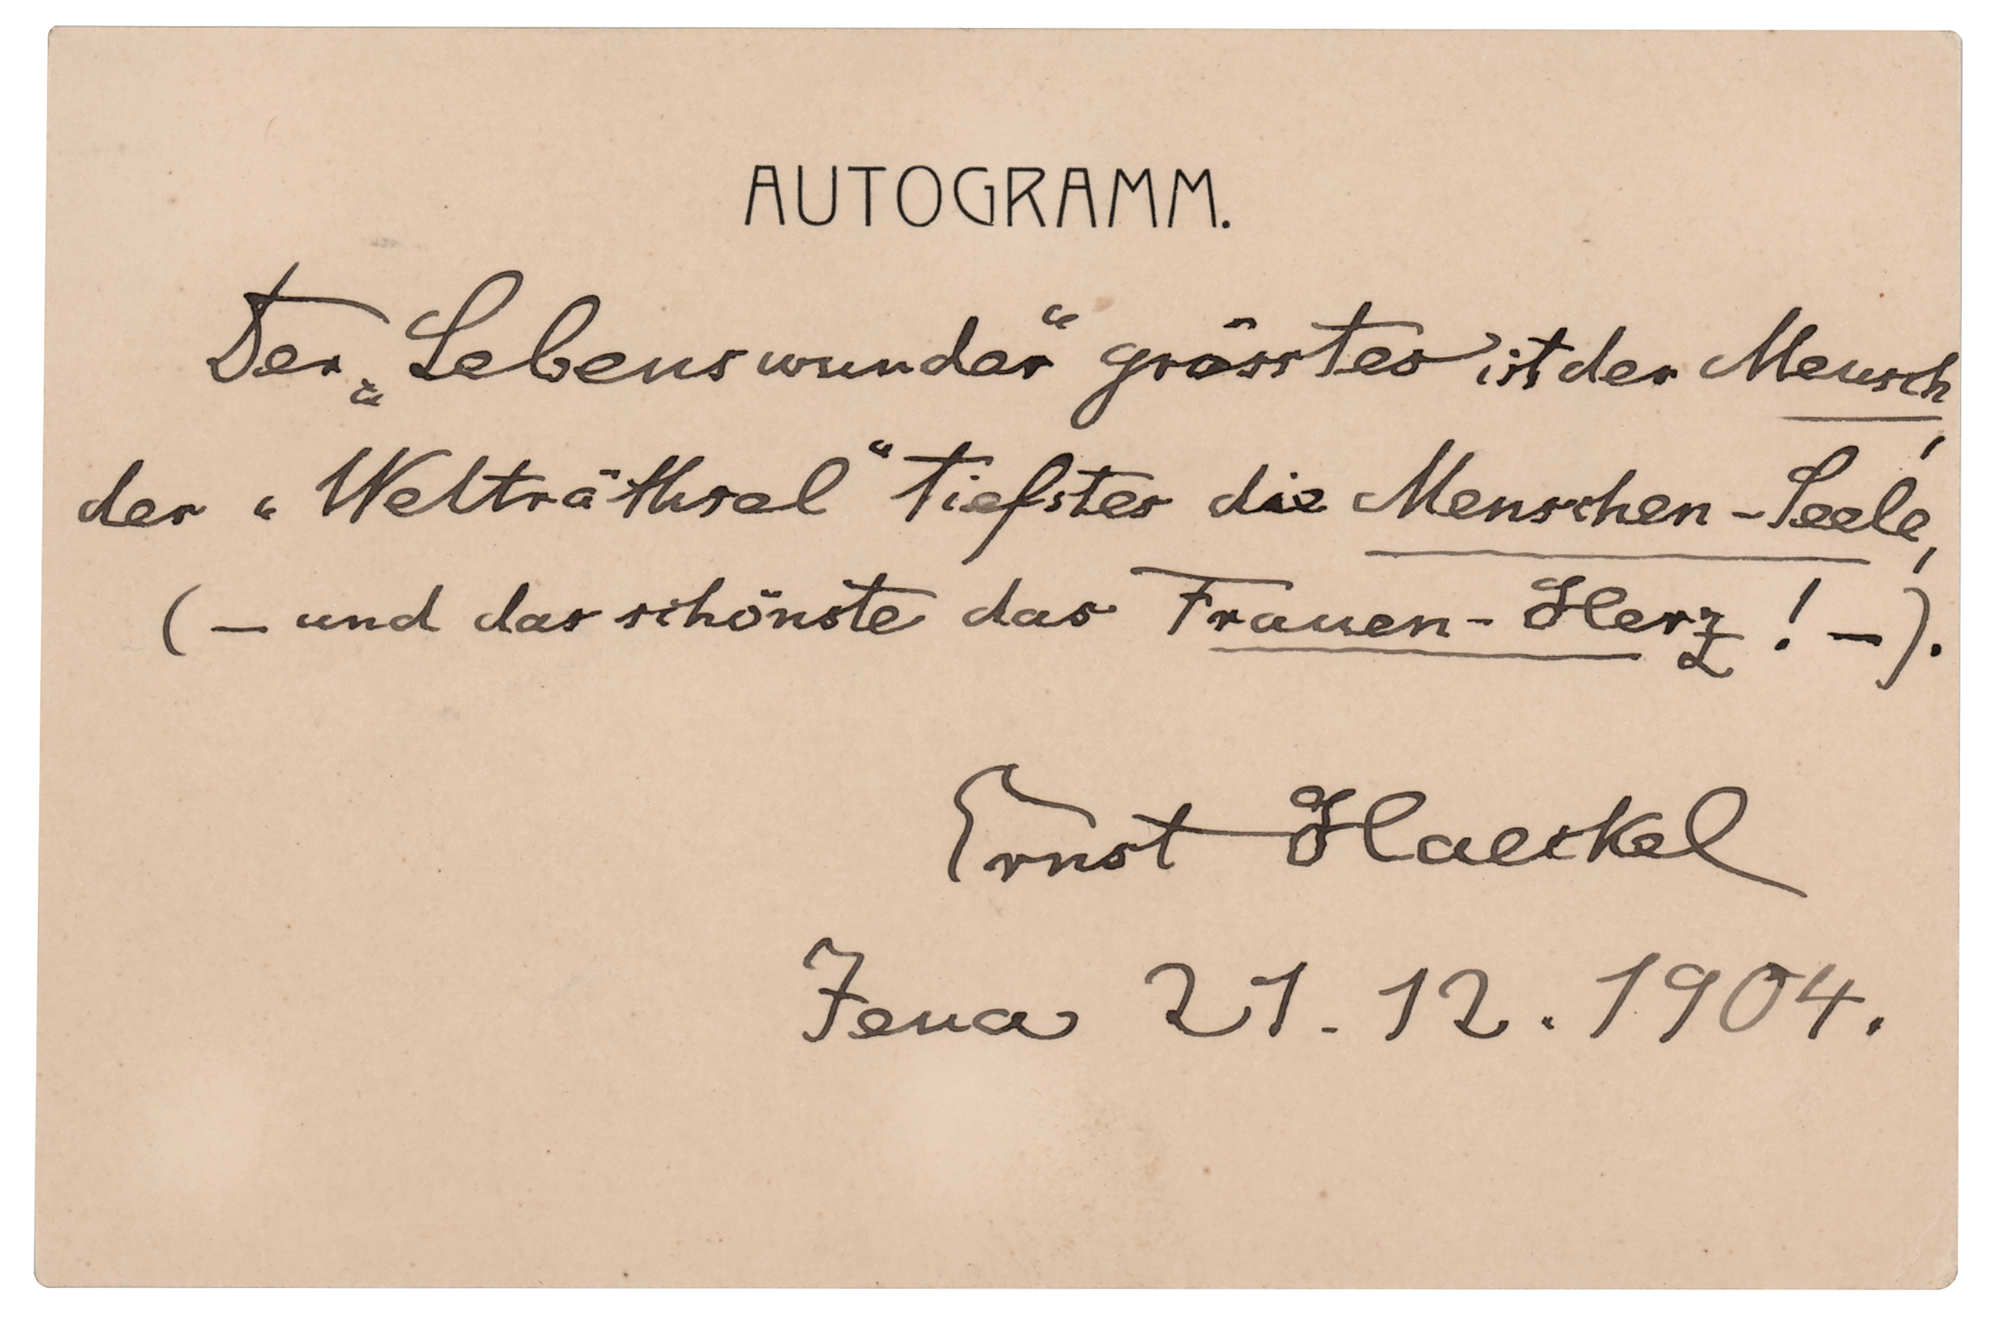 AUTOGRAMM.
Der „Lebenswunder“ grösstes ist der Mensch,
der „Welträthsel“ tiefstes die Menschen-Seele,
(– und das schönste das Frauen-Herz! –).
Ernst Haeckel
Jena 21.12.1904.